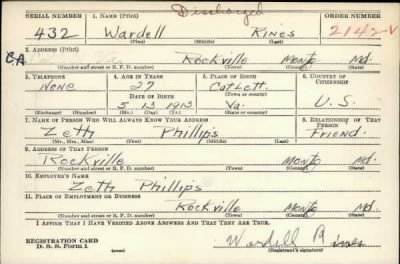 Discharged
SERIAL NUMBER 1. NAME (Print) ORDER NUMBER
432 Wardell Rines 2142 V
(First) (Middle) (Last)
2. ADDRESS (Print)
Rockville Montg Md.
(Number and street or R. F. D. number) (Town) (County) (State)
3. TELEPHONE 4. AGE IN YEARS 5. PLACE OF BIRTH 6. COUNTRY OF CITIZENSHIP
None 27 Catlett
DATE OF BIRTH (Town or county)
5 13 1913 Va. U.S.
(Exchange) (Number) (Mo.) (Day) (Yr.) (State or country)
7. NAME OF PERSON WHO WILL ALWAYS KNOW YOUR ADDRESS 8. RELATIONSHIP OF THAT PERSON
Zeth Phillips Friend.
(Mr., Mrs., Miss) (First) (Middle) (Last)
9. ADDRESS OF THAT PERSON
Rockville Montg Md.
(Number and street or R. F. D. number) (Town) (County) (State)
10. EMPLOYER'S NAME
Zeth Phillips
11. PLACE OF EMPLOYMENT OR BUSINESS
Rockville Montg Md.
(Number and street or R. F. D. number) (Town) (County) (State)
I AFFIRM THAT I HAVE VERIFIED ABOVE ANSWERS AND THAT THEY ARE TRUE.
REGISTRATION CARD
D. S. S. Form 1 (over) Wardell Rines
(Registrant's signature)